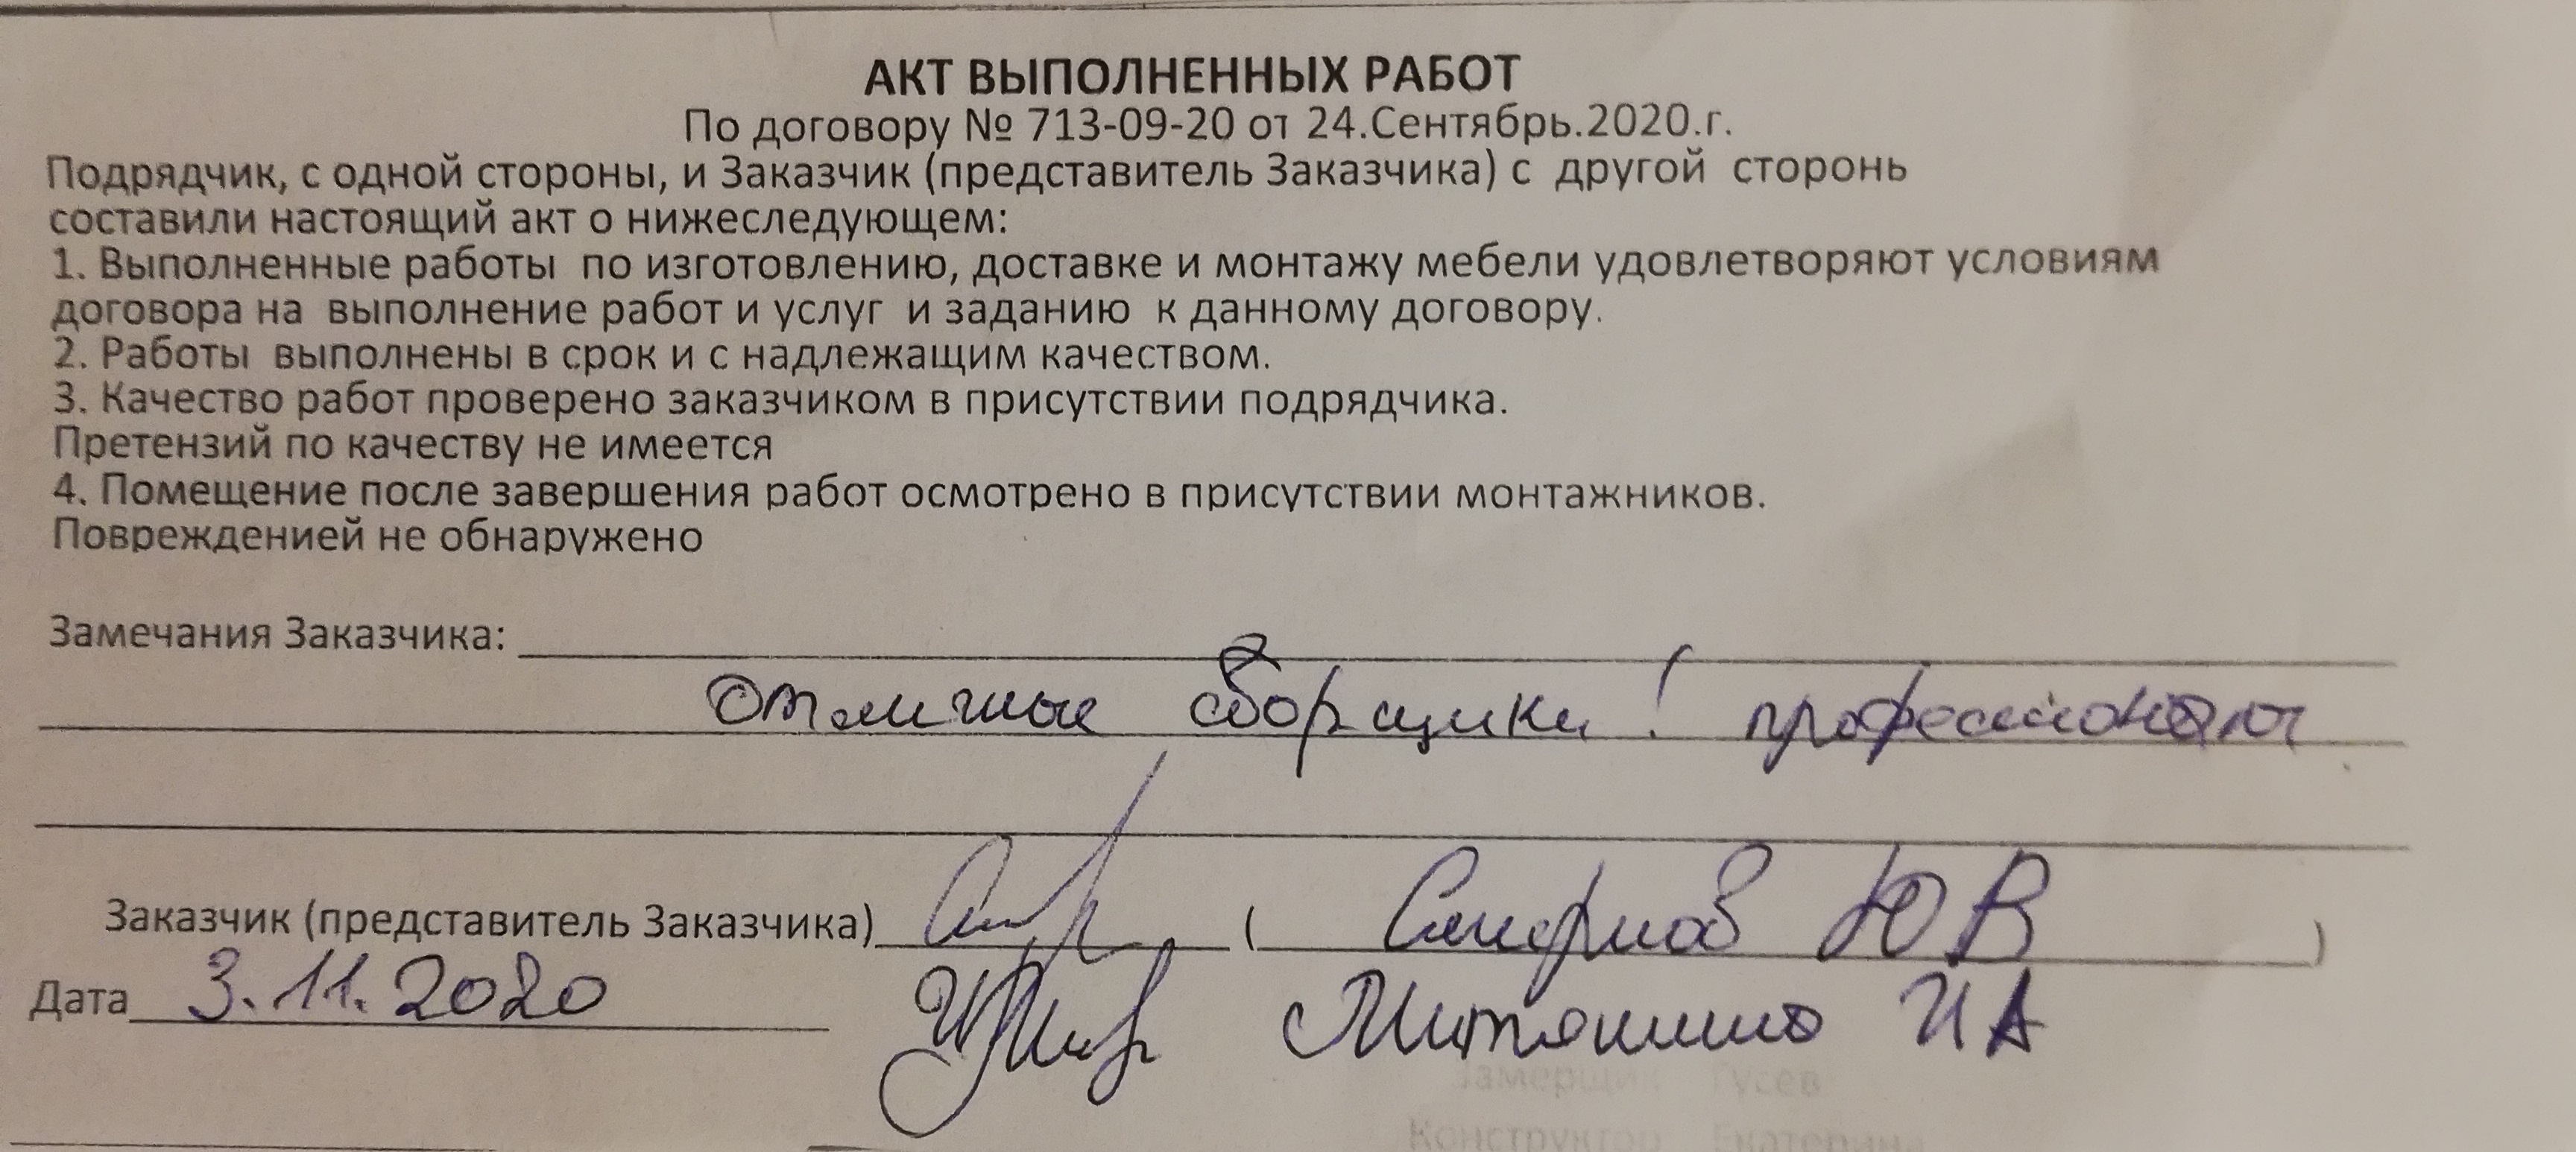 АКТ ВЫПОЛНЕННЫХ РАБОТ
По договору № 713-09-20 от 24.Сентябрь.2020.г.
Подрядчик, с одной стороны, и Заказчик (представитель Заказчика) с другой сторонь
составили настоящий акт о нижеследующем:
1. Выполненные работы по изготовлению, доставке и монтажу мебели удовлетворяют условиям
договора на выполнение работ и услуг и заданию к данному договору.
2. Работы выполнены в срок и с надлежащим качеством.
3. Качество работ проверено заказчиком в присутствии подрядчика.
Претензий по качеству не имеется
4. Помещение после завершения работ осмотрено в присутствии монтажников.
Поврежденией не обнаружено
Замечания Заказчика:
Отличные сборщики! профессионалы
Заказчик (представитель Заказчика) ( Смирнов Ю В )
Дата 3.11.2020 И А
Замерщик Гусев
Конструктор Екатерина